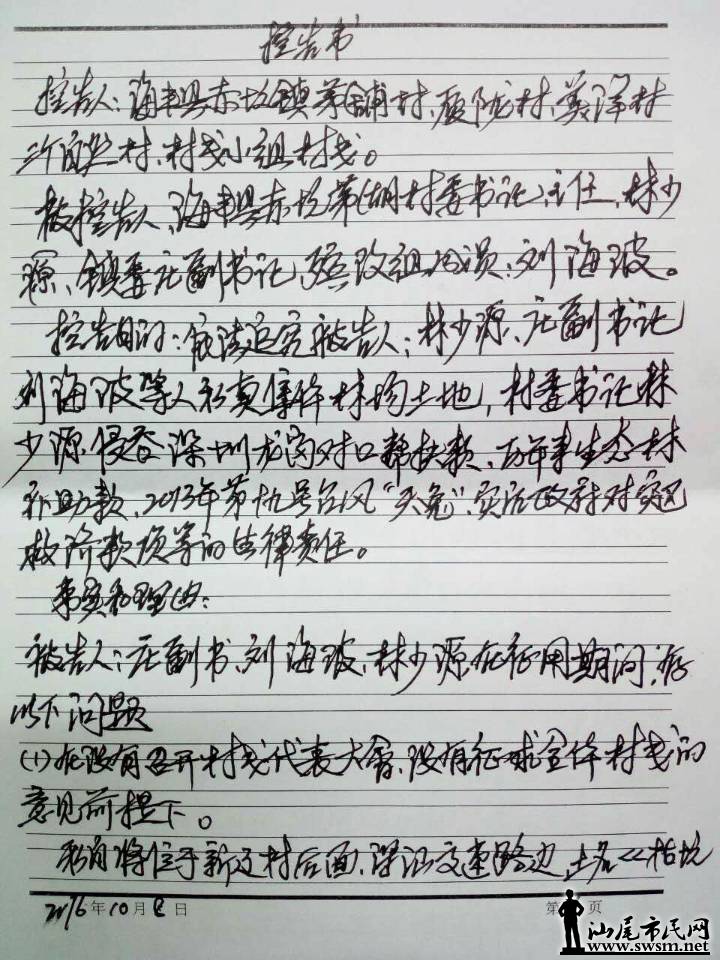 控告书
控告人：海丰县赤坑镇茅铺村、厦陇村、美洋村
村，村民小组村民。
被控告人、海丰县赤坑茅湖村委书记、主任、林少
源、镇委庄副书记、组成员：刘海波。
控告目的：依法追究被告人：林少源、庄副书记
刘海波等人私卖集体林场土地，村委书记林
少源侵吞深圳龙岗对口帮扶款、历年来生态林
补助款、2013年第玖号台风“天兔”、政府对灾民
救济款项等的法律责任。
事实和理由：
被告人：庄副书、刘海波、林少源在征用期间，存
以下问题
(1)在没有召开村民代表大会、没有征求全体村民的
意见前提下。
私自将位于新辽村后面、深汕交通路边，土名<<桔坑
2016年10月 日
第 页
汕尾市民网
www.swsm.net